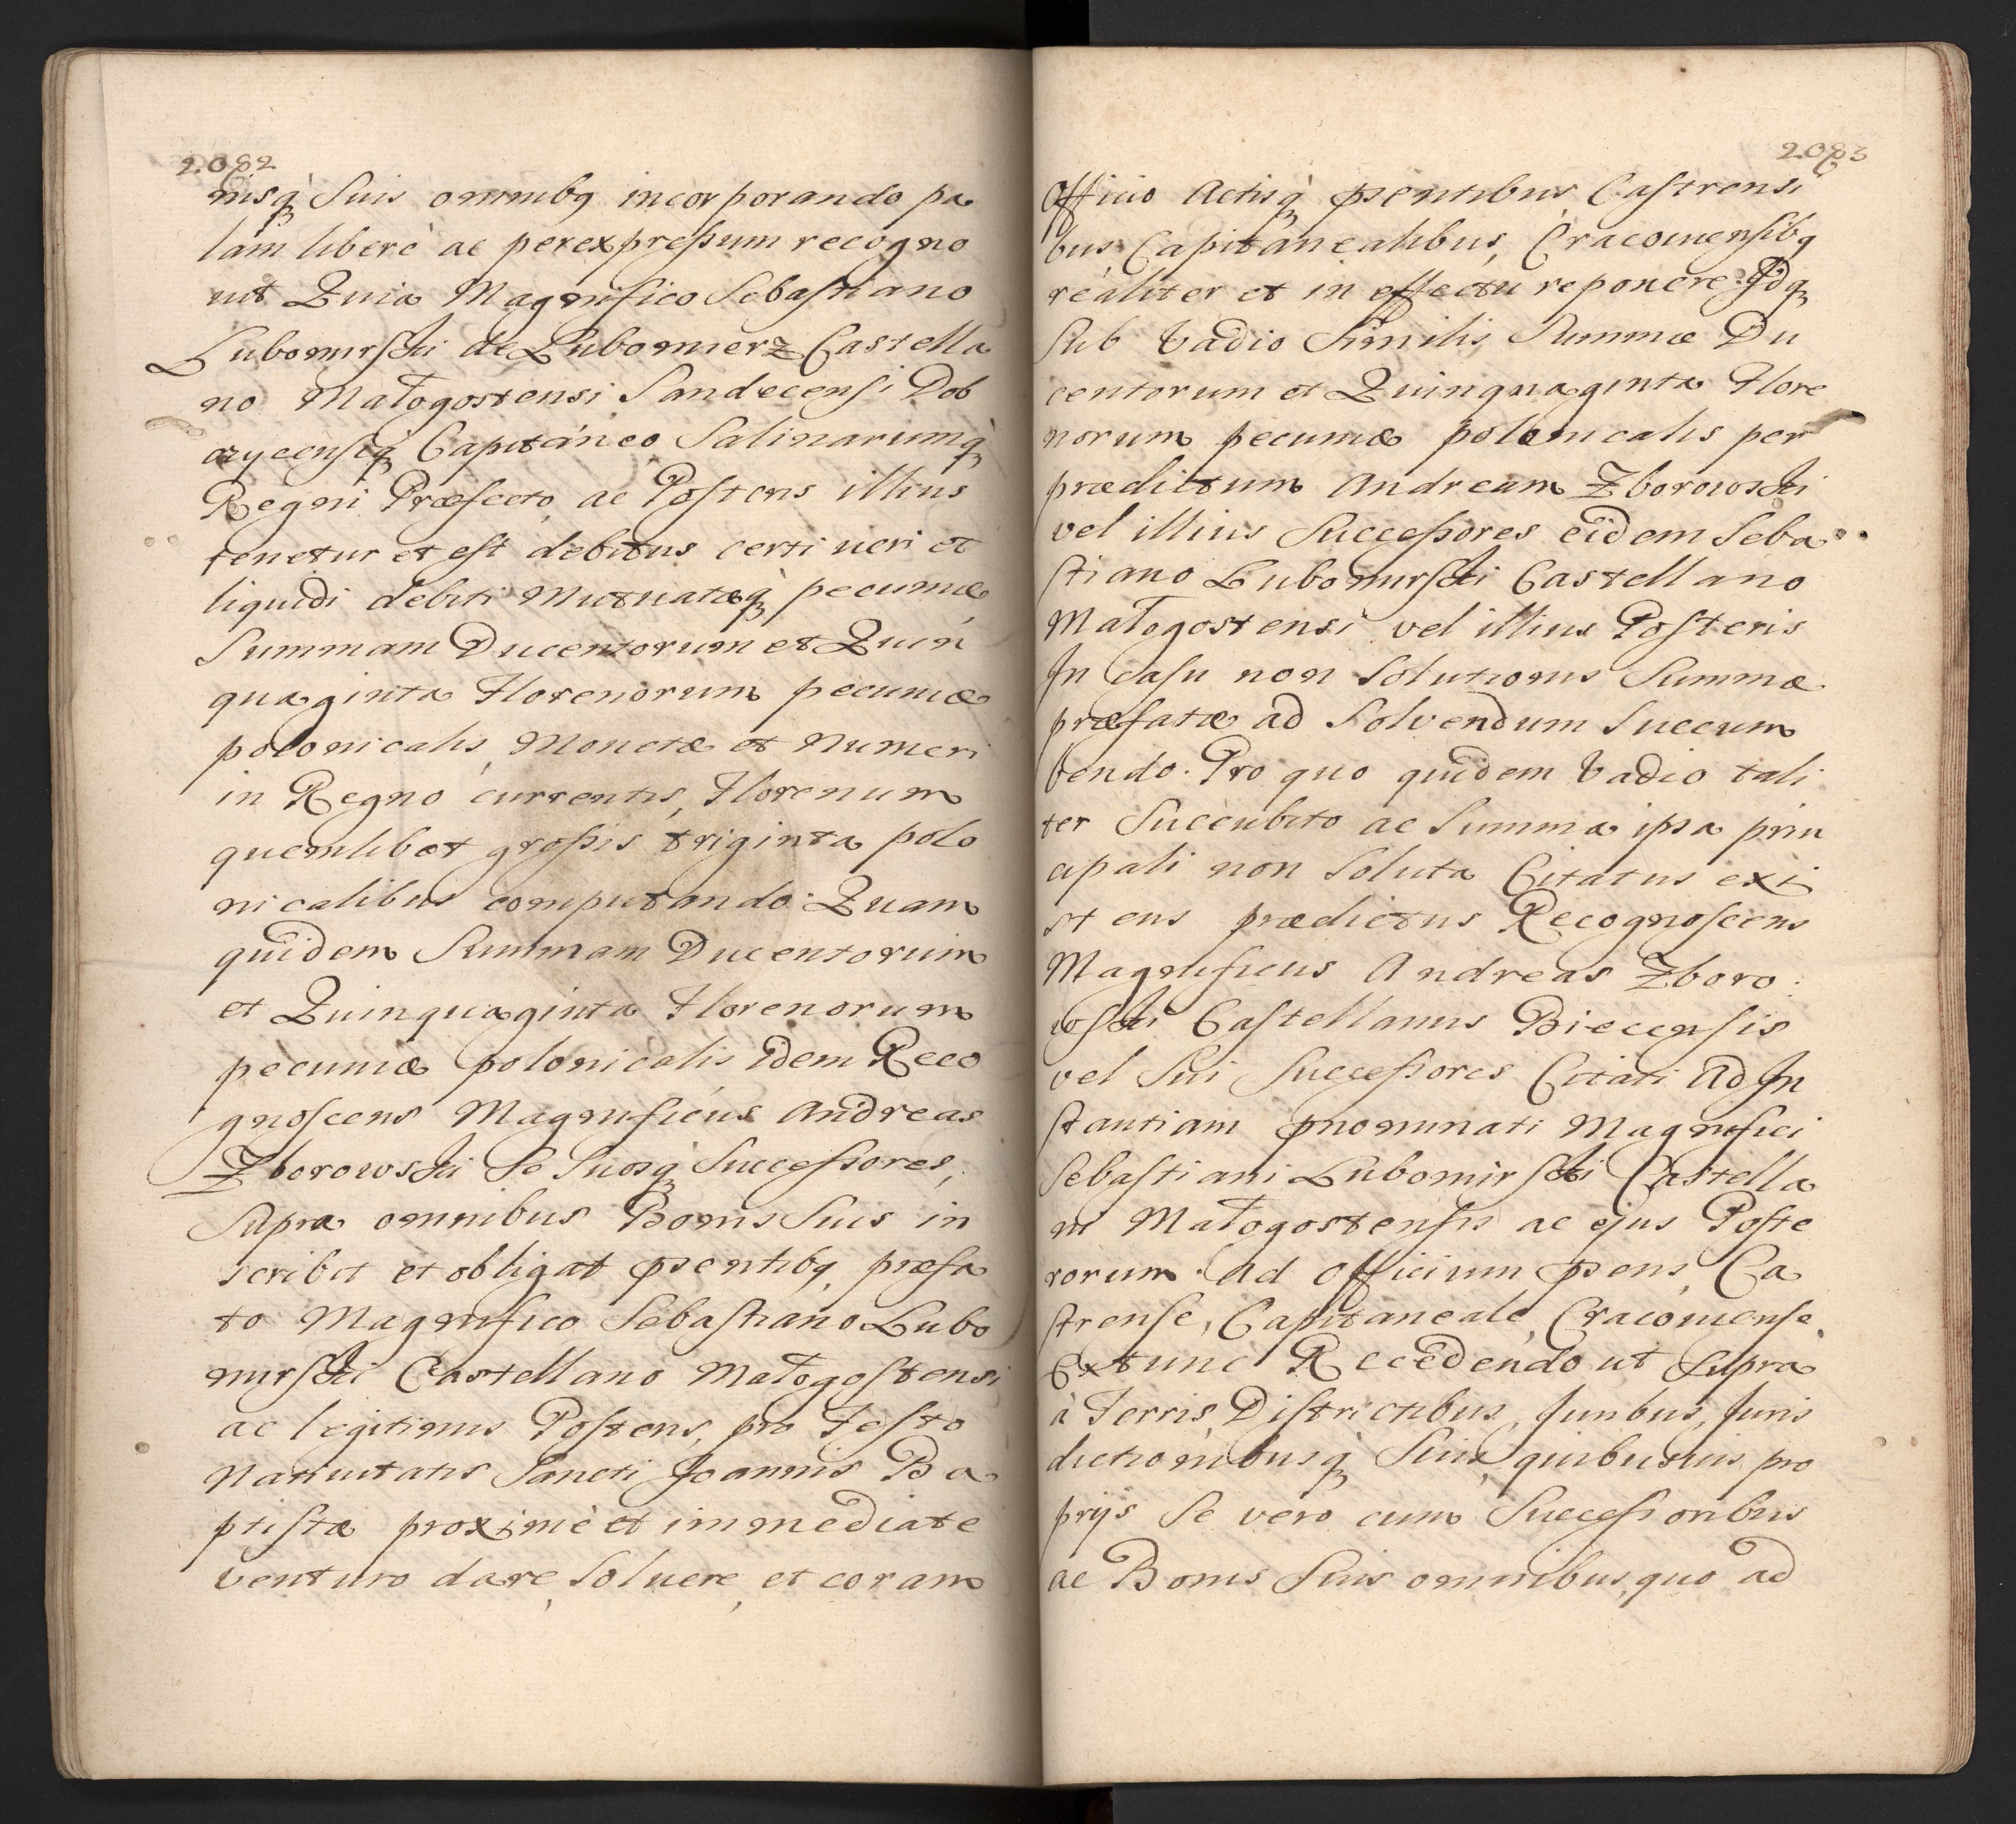 2082
nisq̀ Suis omnibq incorporando pa
lam liberè ac per expreſsum recogno
uit Quia Magnifico Sebaſtiano
Lubomirſki de Lubomierz Castella
no Małogostensi Sandecenſi Dob
czycenſiq̀ Capitáneo Salinarumq̀
Regni Præfecto ac Poſteris illius
tenetur et eſt debitus certi ueri et
liquidi debiti Mutuatæq̀ pecuniæ
Summam Ducentorum et Quin
quaginta Florenorum pecuniæ
polonicalis, Monetæ et Numeri
in Regno currentis, Florenum
quemlibet groſsis triginta polo
nicalibus computando. Quam
quidem Summam Ducentorum
et Quinquaginta Florenorum
pecuniæ polonicalis idem Reco
gnoſcens Magnificus Andreas
Zborowski Se Suosq̀ Succeſsores,
Supra omnibus Bonis Suis in
scribit et obligat pſentibq, præfa
to Magnifico Sebaſtiano Lubo
mirſki Castellano Małogoſtensi
ac legitimis Poſteris, pro Feſto
Natiuitatis Sancti Joannis Ba
ptiſtæ proximè et immediate
venturo dare, Soluere, et coram
2083
Officio Actisq̀ pſentibus Caſtrensi
bus Capitanealibus, Cracouienſibq
réaliter et in effectu reponere. Idq̀
Sub Vadio Similis Summæ Du
centorum et Quinquaginta Flore
norum pecuniæ polonicalis per
prædictum Andream Zborowski
vel illius Succeſsores eidem Seba
ſtiano Lubomirſki Castellano
Małogostensi vel illius Poſteris
In Casu non Solutionis Summæ
præfatæ ad Solvendum Succum
bendo. Pro quo quidem Vadio tali
ter Succubito ac Summa ipsa prin
cipali non Soluta Citatus exi
st ens prædictus Recognoſcens
Magnificus Andreas Zboro:
wſki Caſtellanus Biecenſis
vel Sui Succeſsores Citati Ad In
ſtantiam pnominati Magnifici
Sebaſtiani Lubomirſki Castella
ni Małogostenſis ac ejus Poſte
rorum. Ad Officium pſens, Ca
ſtrenſe, Capitaneale, Cracouienſe
Ex tunc Recedendo ut Supra
à Terris, Diſtrictibus, Juribus, Juris
dictionibusq̀ Suis quibusuis pro
prijs Se vero cum Succeſsoribus
ac Bonis Suis omnibus, quo ad